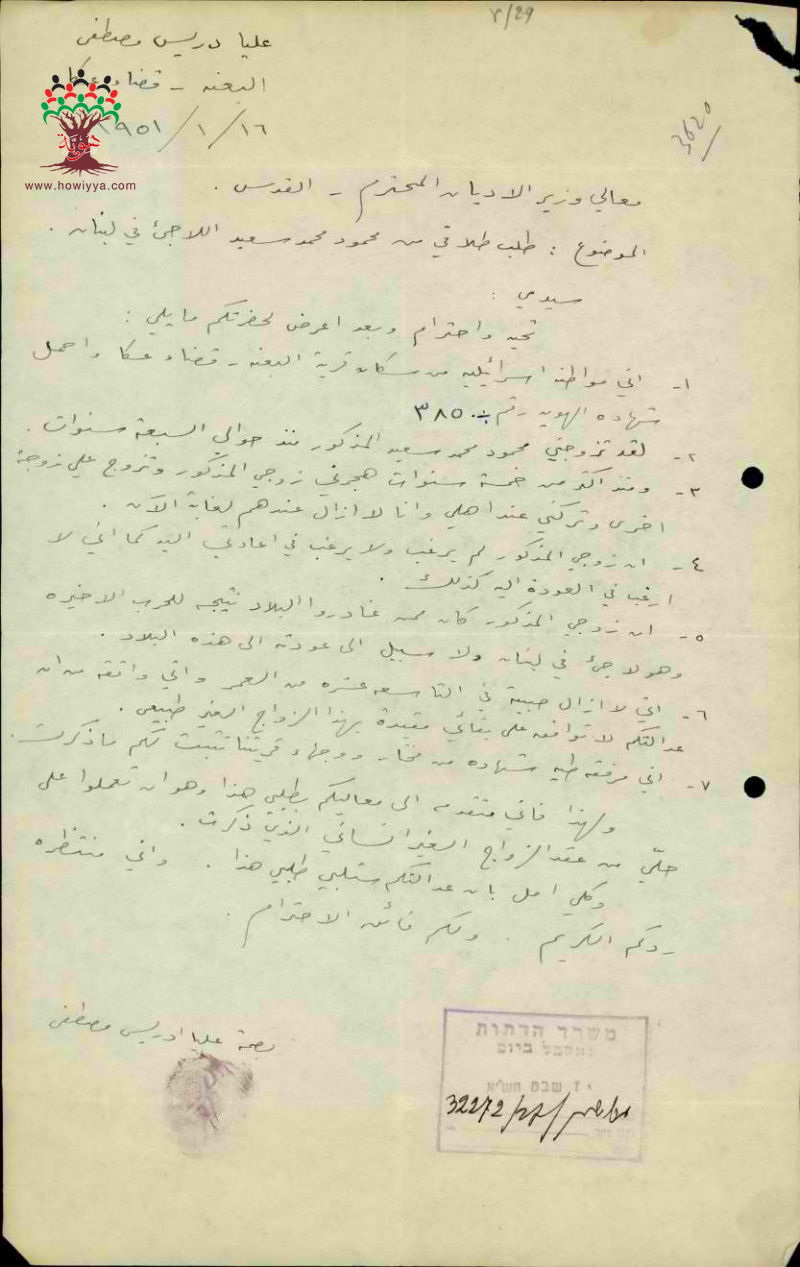 ٢/29
عليا دريس مصطفى
البعنه - قضاء عكا
١٩٥١/١/١٦
هوية
www.howiyya.com
معالي وزير الاديان المحترم - القدس .
الموضوع : طلب طلاقي من محمود محمد سعيد اللاجئ في لبنان .
سيدي :
تحيه واحترام وبعد اعرض لحضرتكم ما يلي :
١- اني مواطنه اسرائيليه من سكان قرية البعنه - قضاء عكا واحمل
شهاده الهويه رقم ٣٨٥٠
٢- لقد تزوجني محمود محمد سعيد المذكور منذ حوالي السبعة سنوات .
٣- ومنذ اكثر من خمسة سنوات هجرني زوجي المذكور وتزوج علي زوجة
اخرى وتركني عند اهلي وانا لا ازال عندهم لغاية الآن .
٤- ان زوجي المذكور لم يرغب ولا يرغب في اعادتي اليه كما اني لا
ارغب في العودة اليه كذلك .
٥- ان زوجي المذكور كان ممن غادروا البلاد نتيجه للحرب الاخيره
وهو لاجئ في لبنان ولا سبيل الى عودته الى هذه البلاد .
٦- اني لا ازال صبية في التاسعه عشره من العمر واني واثقه من ان
عدالتكم لا توافقه على بقائي مقيدة بهذا الزواج الغير طبيعي .
٧- اني مرفقه طيه شهاده من مختار ووجهاء قريتنا تثبت لكم ما ذكرت .
ولهذا فاني متقدمه الى معاليكم بطلبي هذا وهو ان تعملوا على
حلّي من عقد الزواج الغير انساني الذي ذكرت .
وكلي امل بان عدالتكم ستلبي طلبي هذا . واني منتظره
ردكم الكريم . ولكم فائق الاحترام .
بصمة عليا ادريس مصطفى
משרד הדתות
נתקבל ביום
י ז שבט תשי"א
32272